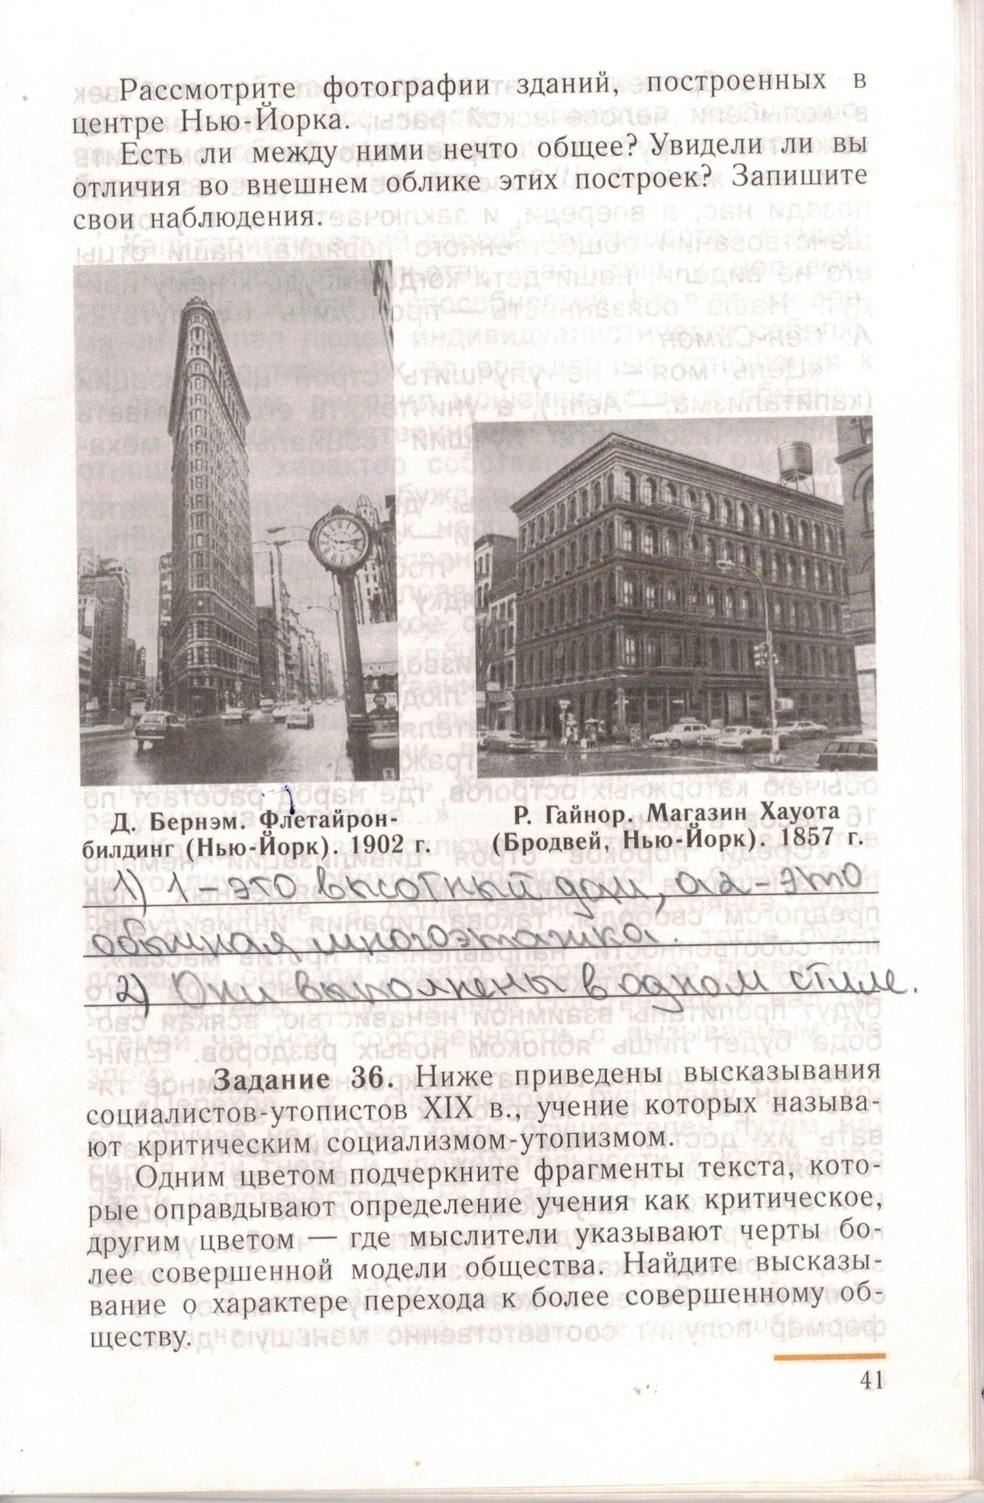 Рассмотрите фотографии зданий, построенных в
центре Нью-Йорка.
Есть ли между ними нечто общее? Увидели ли вы
отличия во внешнем облике этих построек? Запишите
свои наблюдения.
Д. Бернэм. Флетайрон-
билдинг (Нью-Йорк). 1902 г.
Р. Гайнор. Магазин Хауота
(Бродвей, Нью-Йорк). 1857 г.
1) 1 – это высотный дом, а 2 – это
обычная многоэтажка.
2) Они выполнены в одном стиле.
Задание 36. Ниже приведены высказывания
социалистов-утопистов XIX в., учение которых называ-
ют критическим социализмом-утопизмом.
Одним цветом подчеркните фрагменты текста, кото-
рые оправдывают определение учения как критическое,
другим цветом — где мыслители указывают черты бо-
лее совершенной модели общества. Найдите высказы-
вание о характере перехода к более совершенному об-
ществу.
41